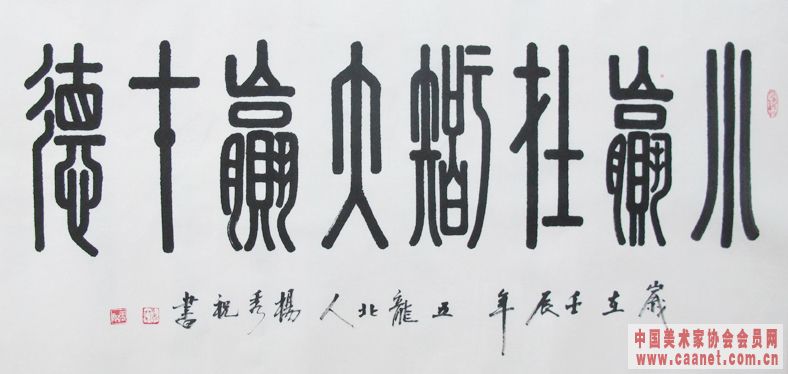 小贏在智大贏在德
歲在壬辰年五龍北人楊秀祝書
中国美术家协会会员网
www.caanet.com.cn